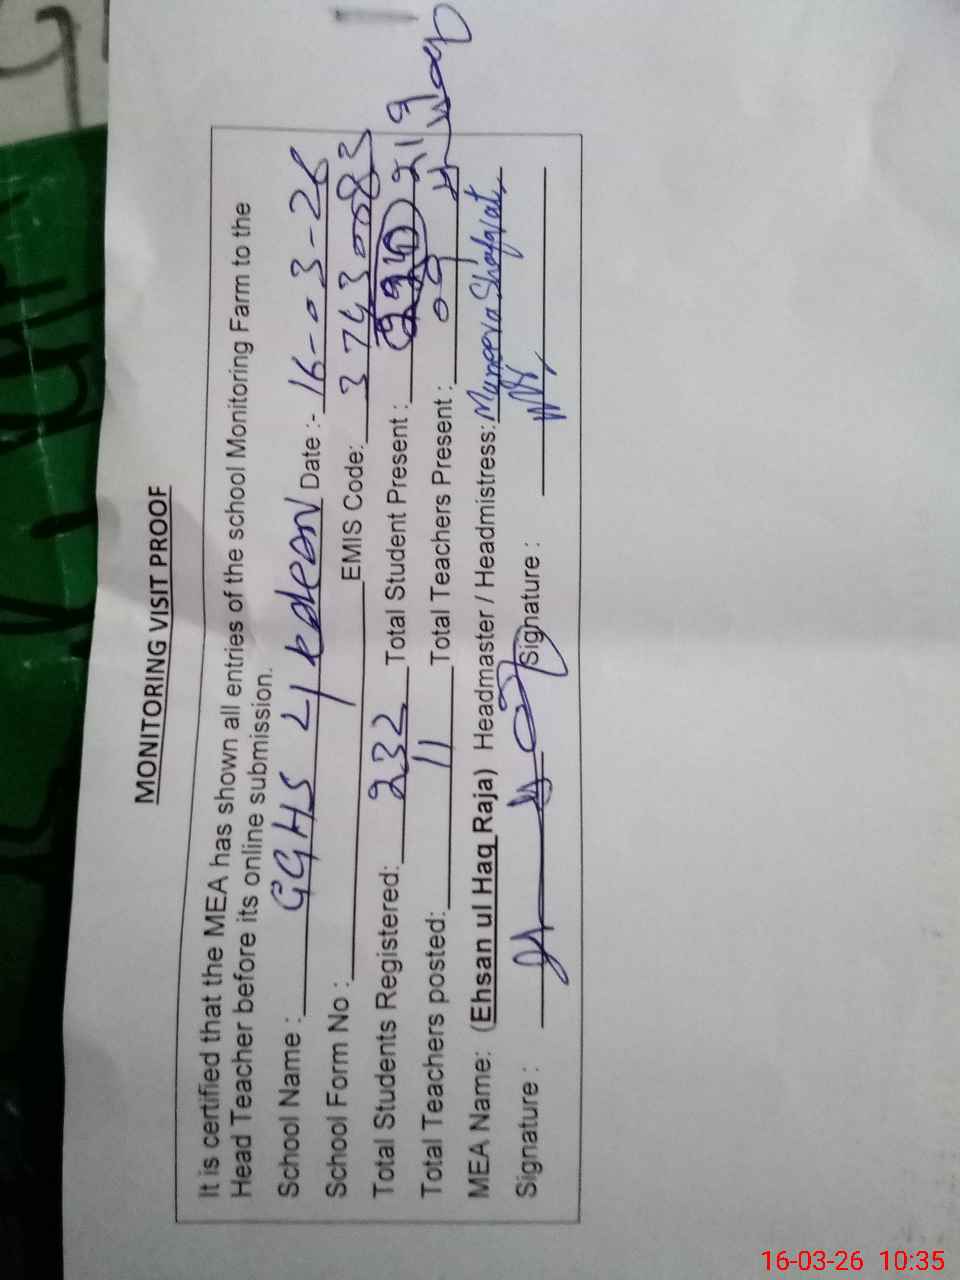 MONITORING VISIT PROOF
It is certified that the MEA has shown all entries of the school Monitoring Farm to the
Head Teacher before its online submission.
School Name : GGHS 41 kdean Date :- 16-03-26
School Form No : EMIS Code: 37430083
Total Students Registered: 232 Total Student Present : 219
Total Teachers posted: 11 Total Teachers Present : 09
MEA Name: (Ehsan ul Haq Raja) Headmaster / Headmistress: Muneeva Shafqat
Signature : Signature :
16-03-26 10:35